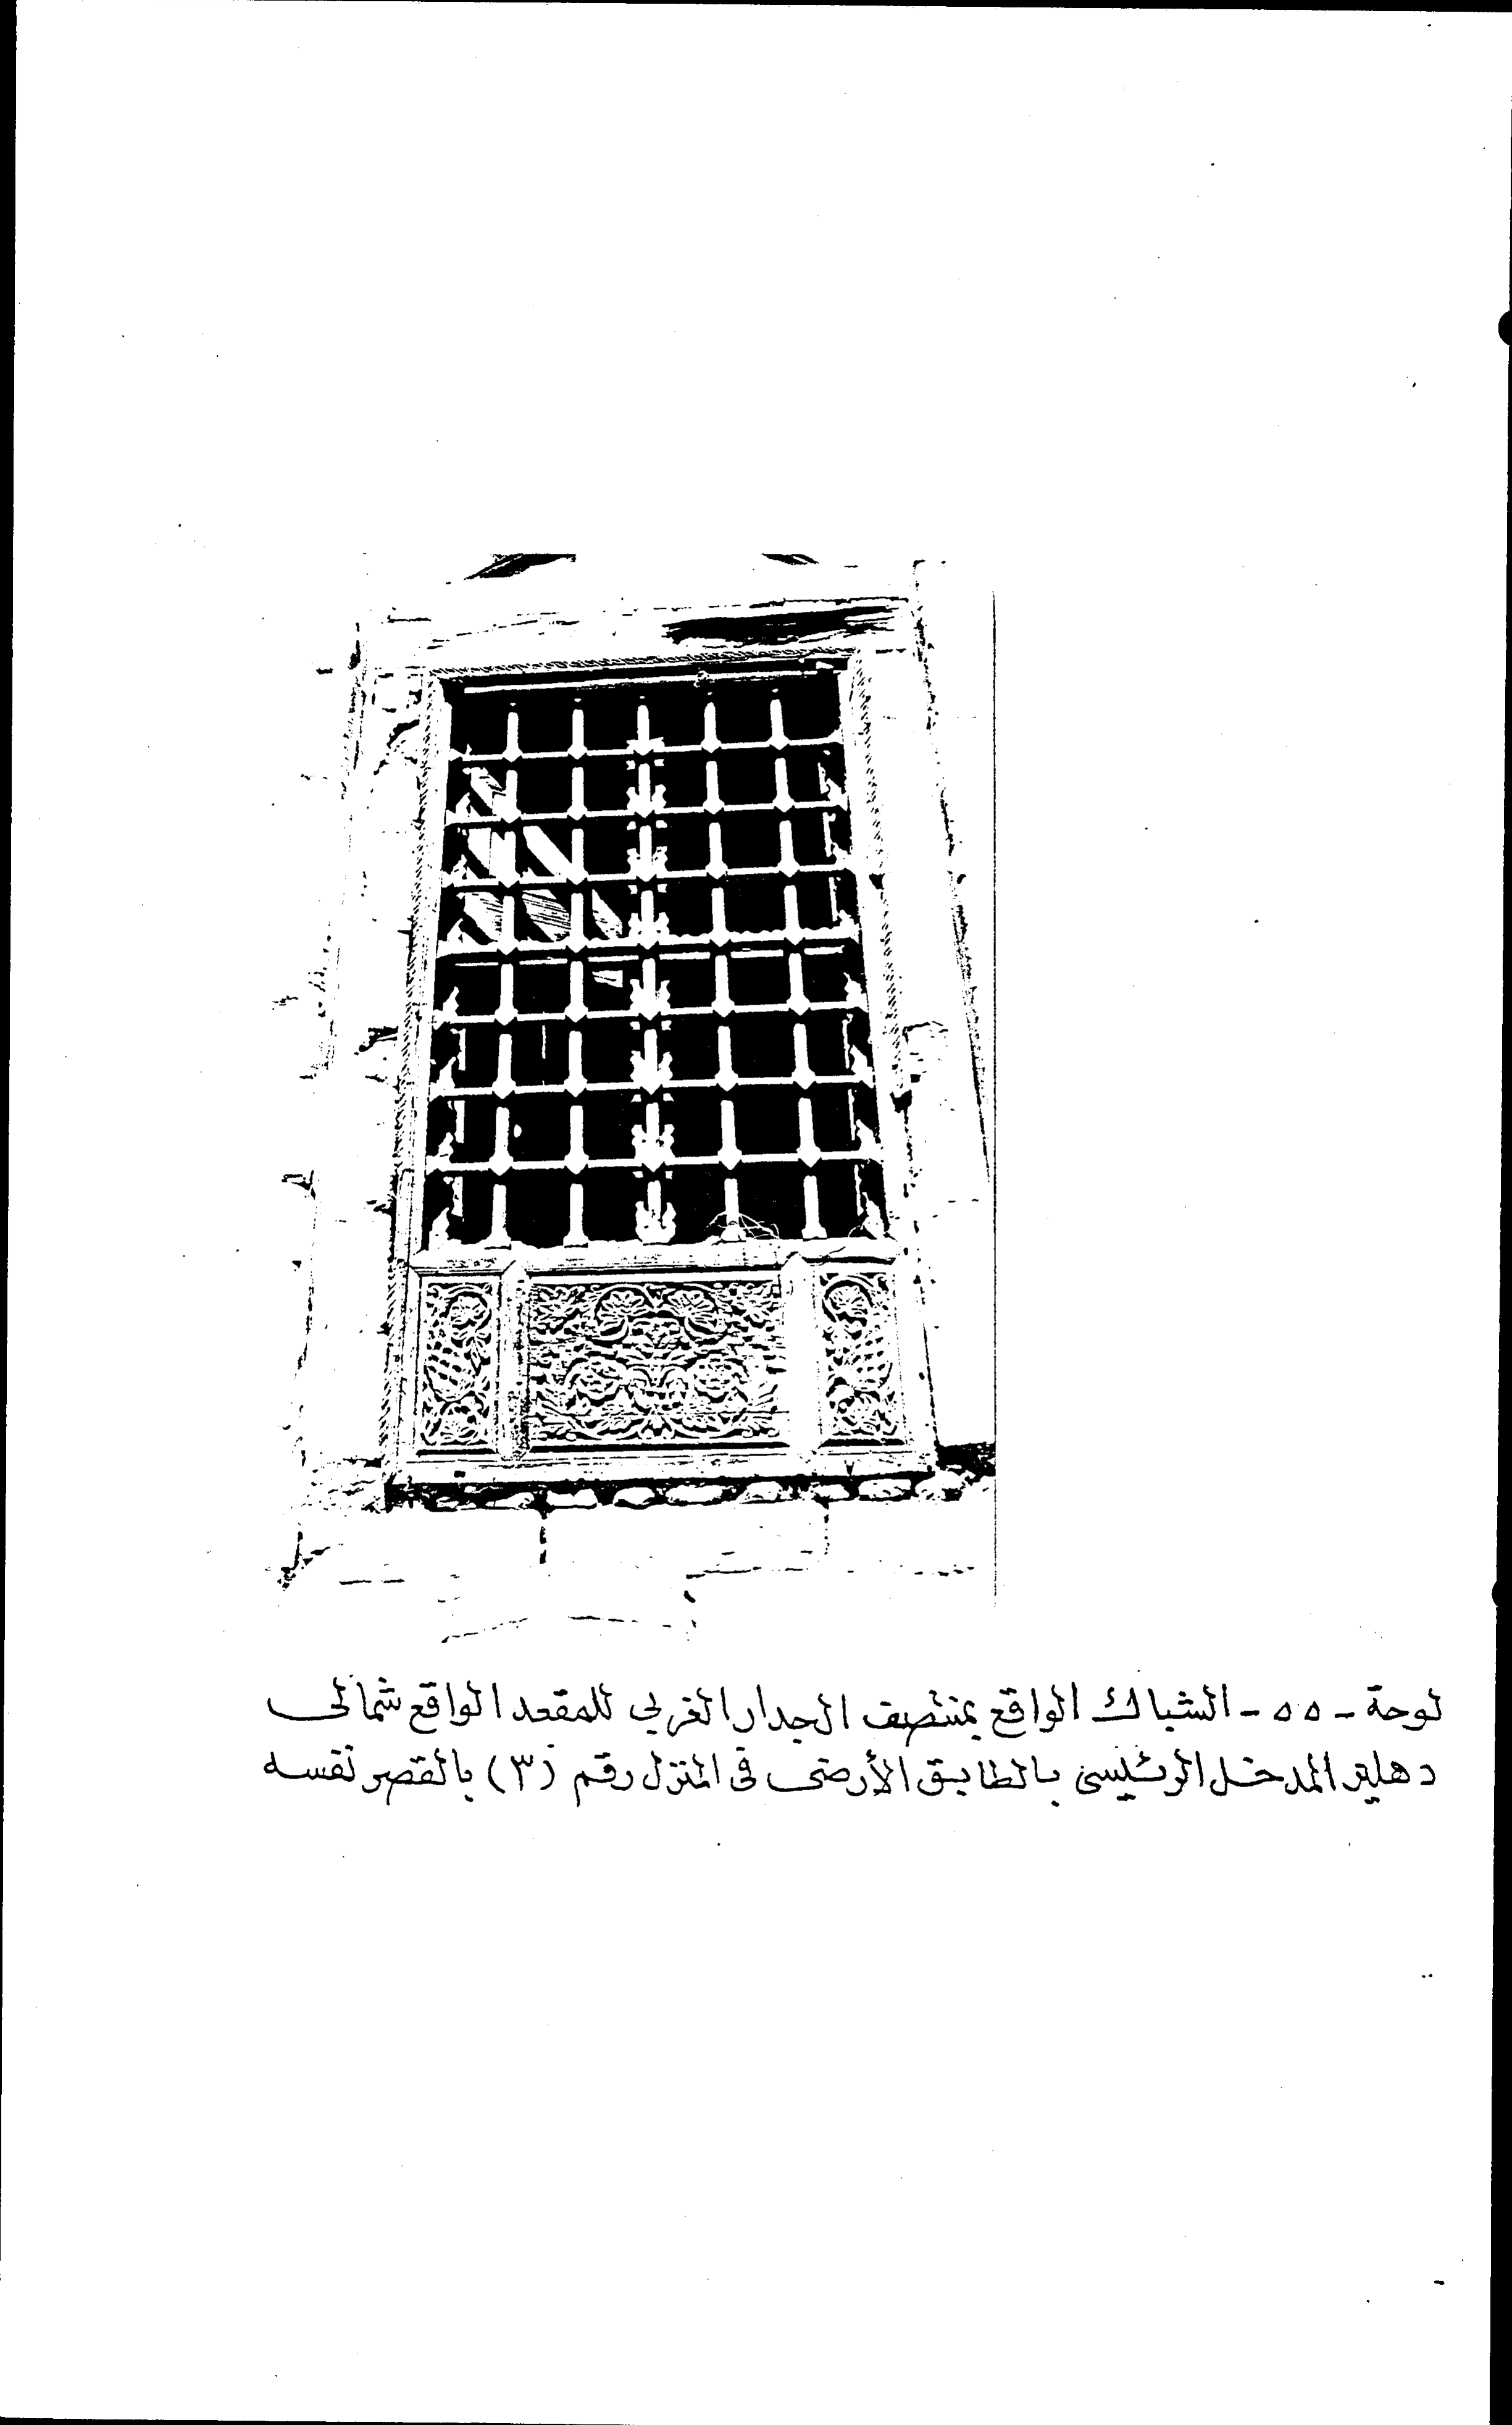 لوحة - ٥٥ - الشباك الواقع بمنتصف الجدار الغربي للمقعد الواقع شمالى
دهليز المدخل الرئيسى بالطابق الأرضى فى المنزل رقم (٣) بالقصر نفسه